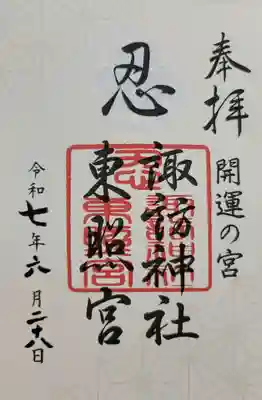 奉拝
開運の宮
忍
諏訪神社
東照宮
令和七年六月二十八日